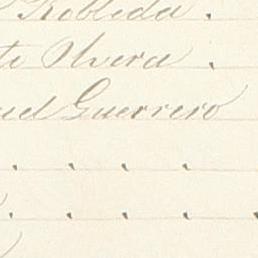 Robleda .
Olvera .
Guerrero